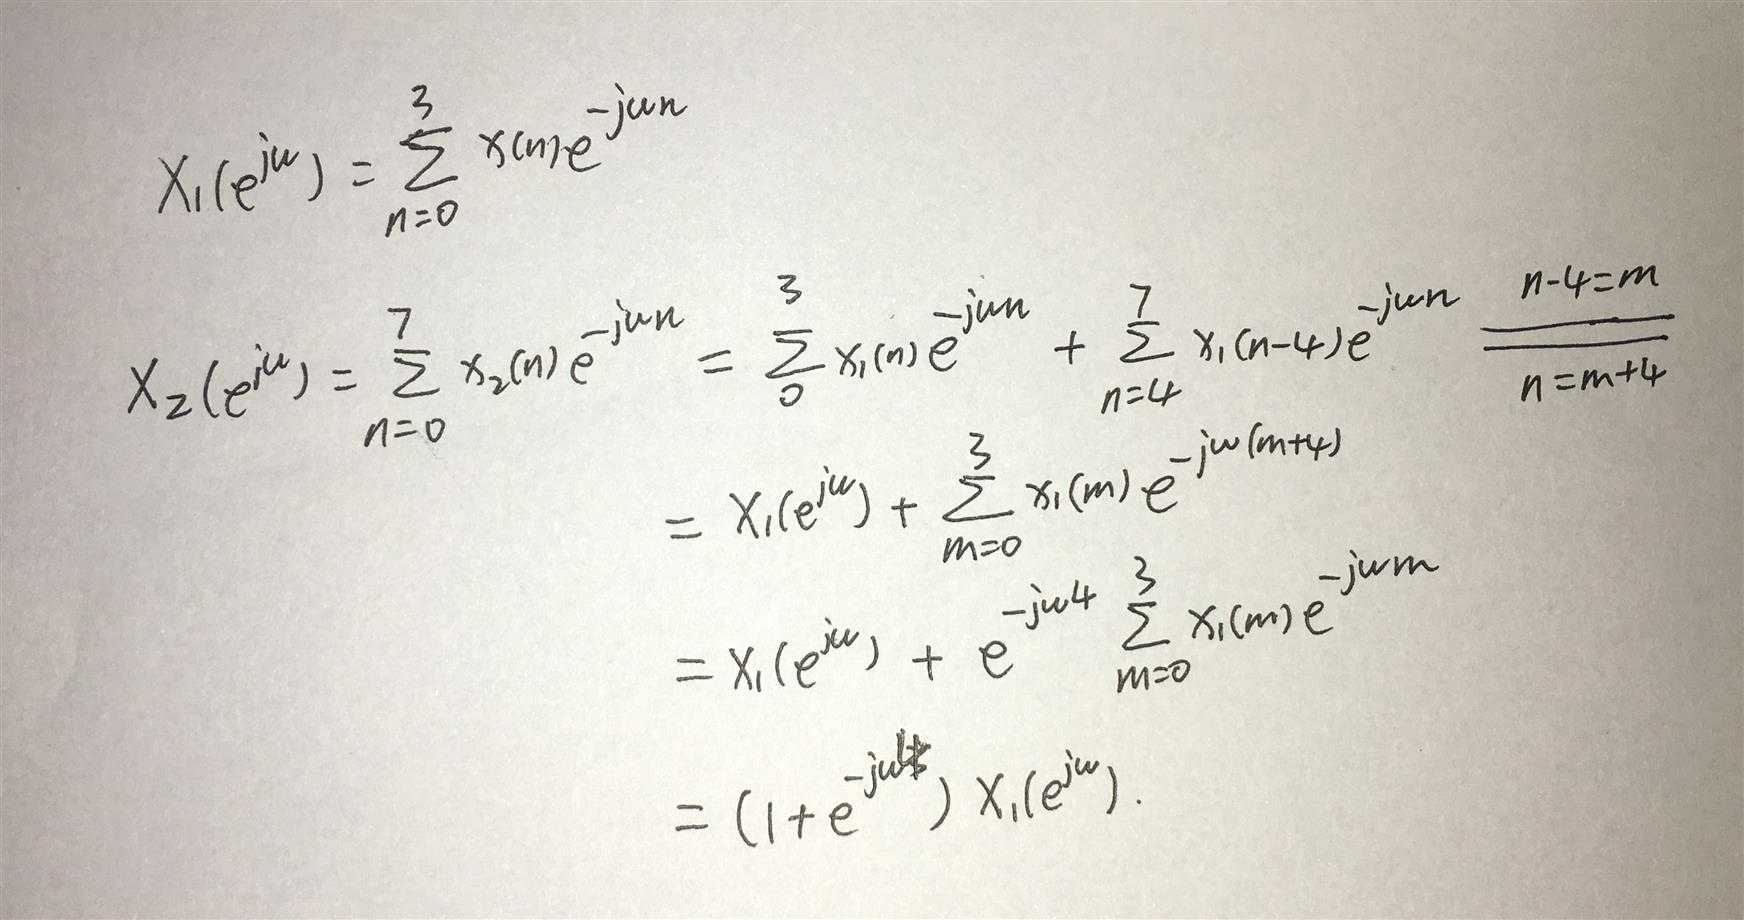 X₁(e^{jω}) = \sum_{n=0}^{3} x(n)e^{-jωn}
X₂(e^{jω}) = \sum_{n=0}^{7} x₂(n)e^{-jωn} = \sum_{0}^{3} x₁(n)e^{-jωn} + \sum_{n=4}^{7} x₁(n-4)e^{-jωn} \xlongequal[n=m+4]{n-4=m}
= X₁(e^{jω}) + \sum_{m=0}^{3} x₁(m)e^{-jω(m+4)}
= X₁(e^{jω}) + e^{-jω4} \sum_{m=0}^{3} x₁(m)e^{-jωm}
= (1+e^{-jω4}) X₁(e^{jω}).